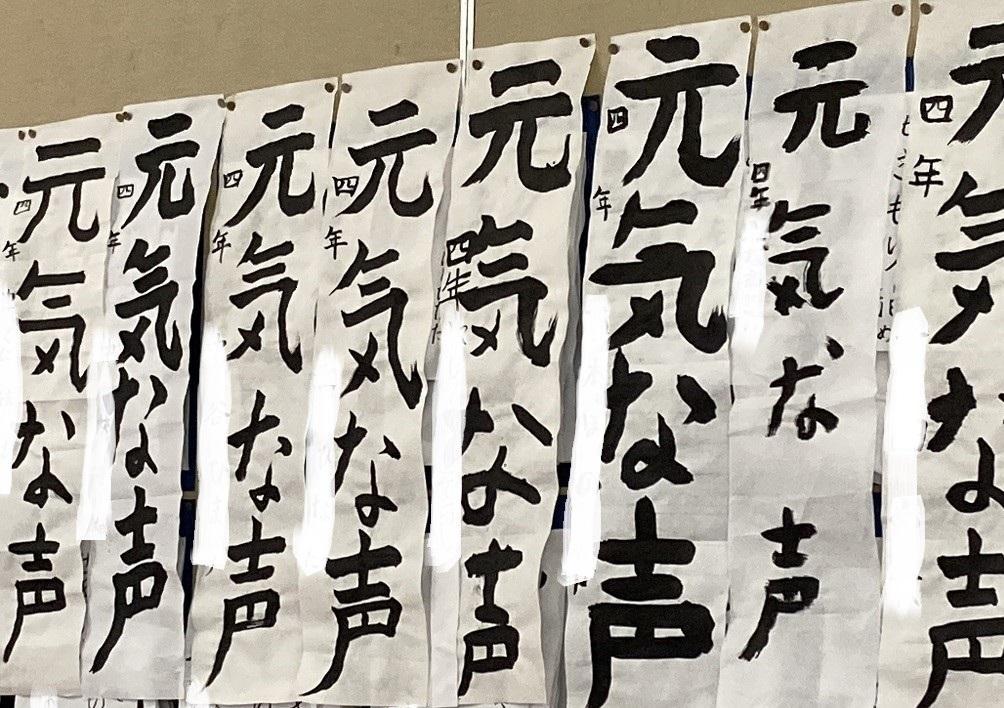 元気な声
四年
元気な声
四年
元気な声
四年
元気な声
四年
元気な声
四年
元気な声
四年
元気な声
四年
元気な声
四年
元気な声